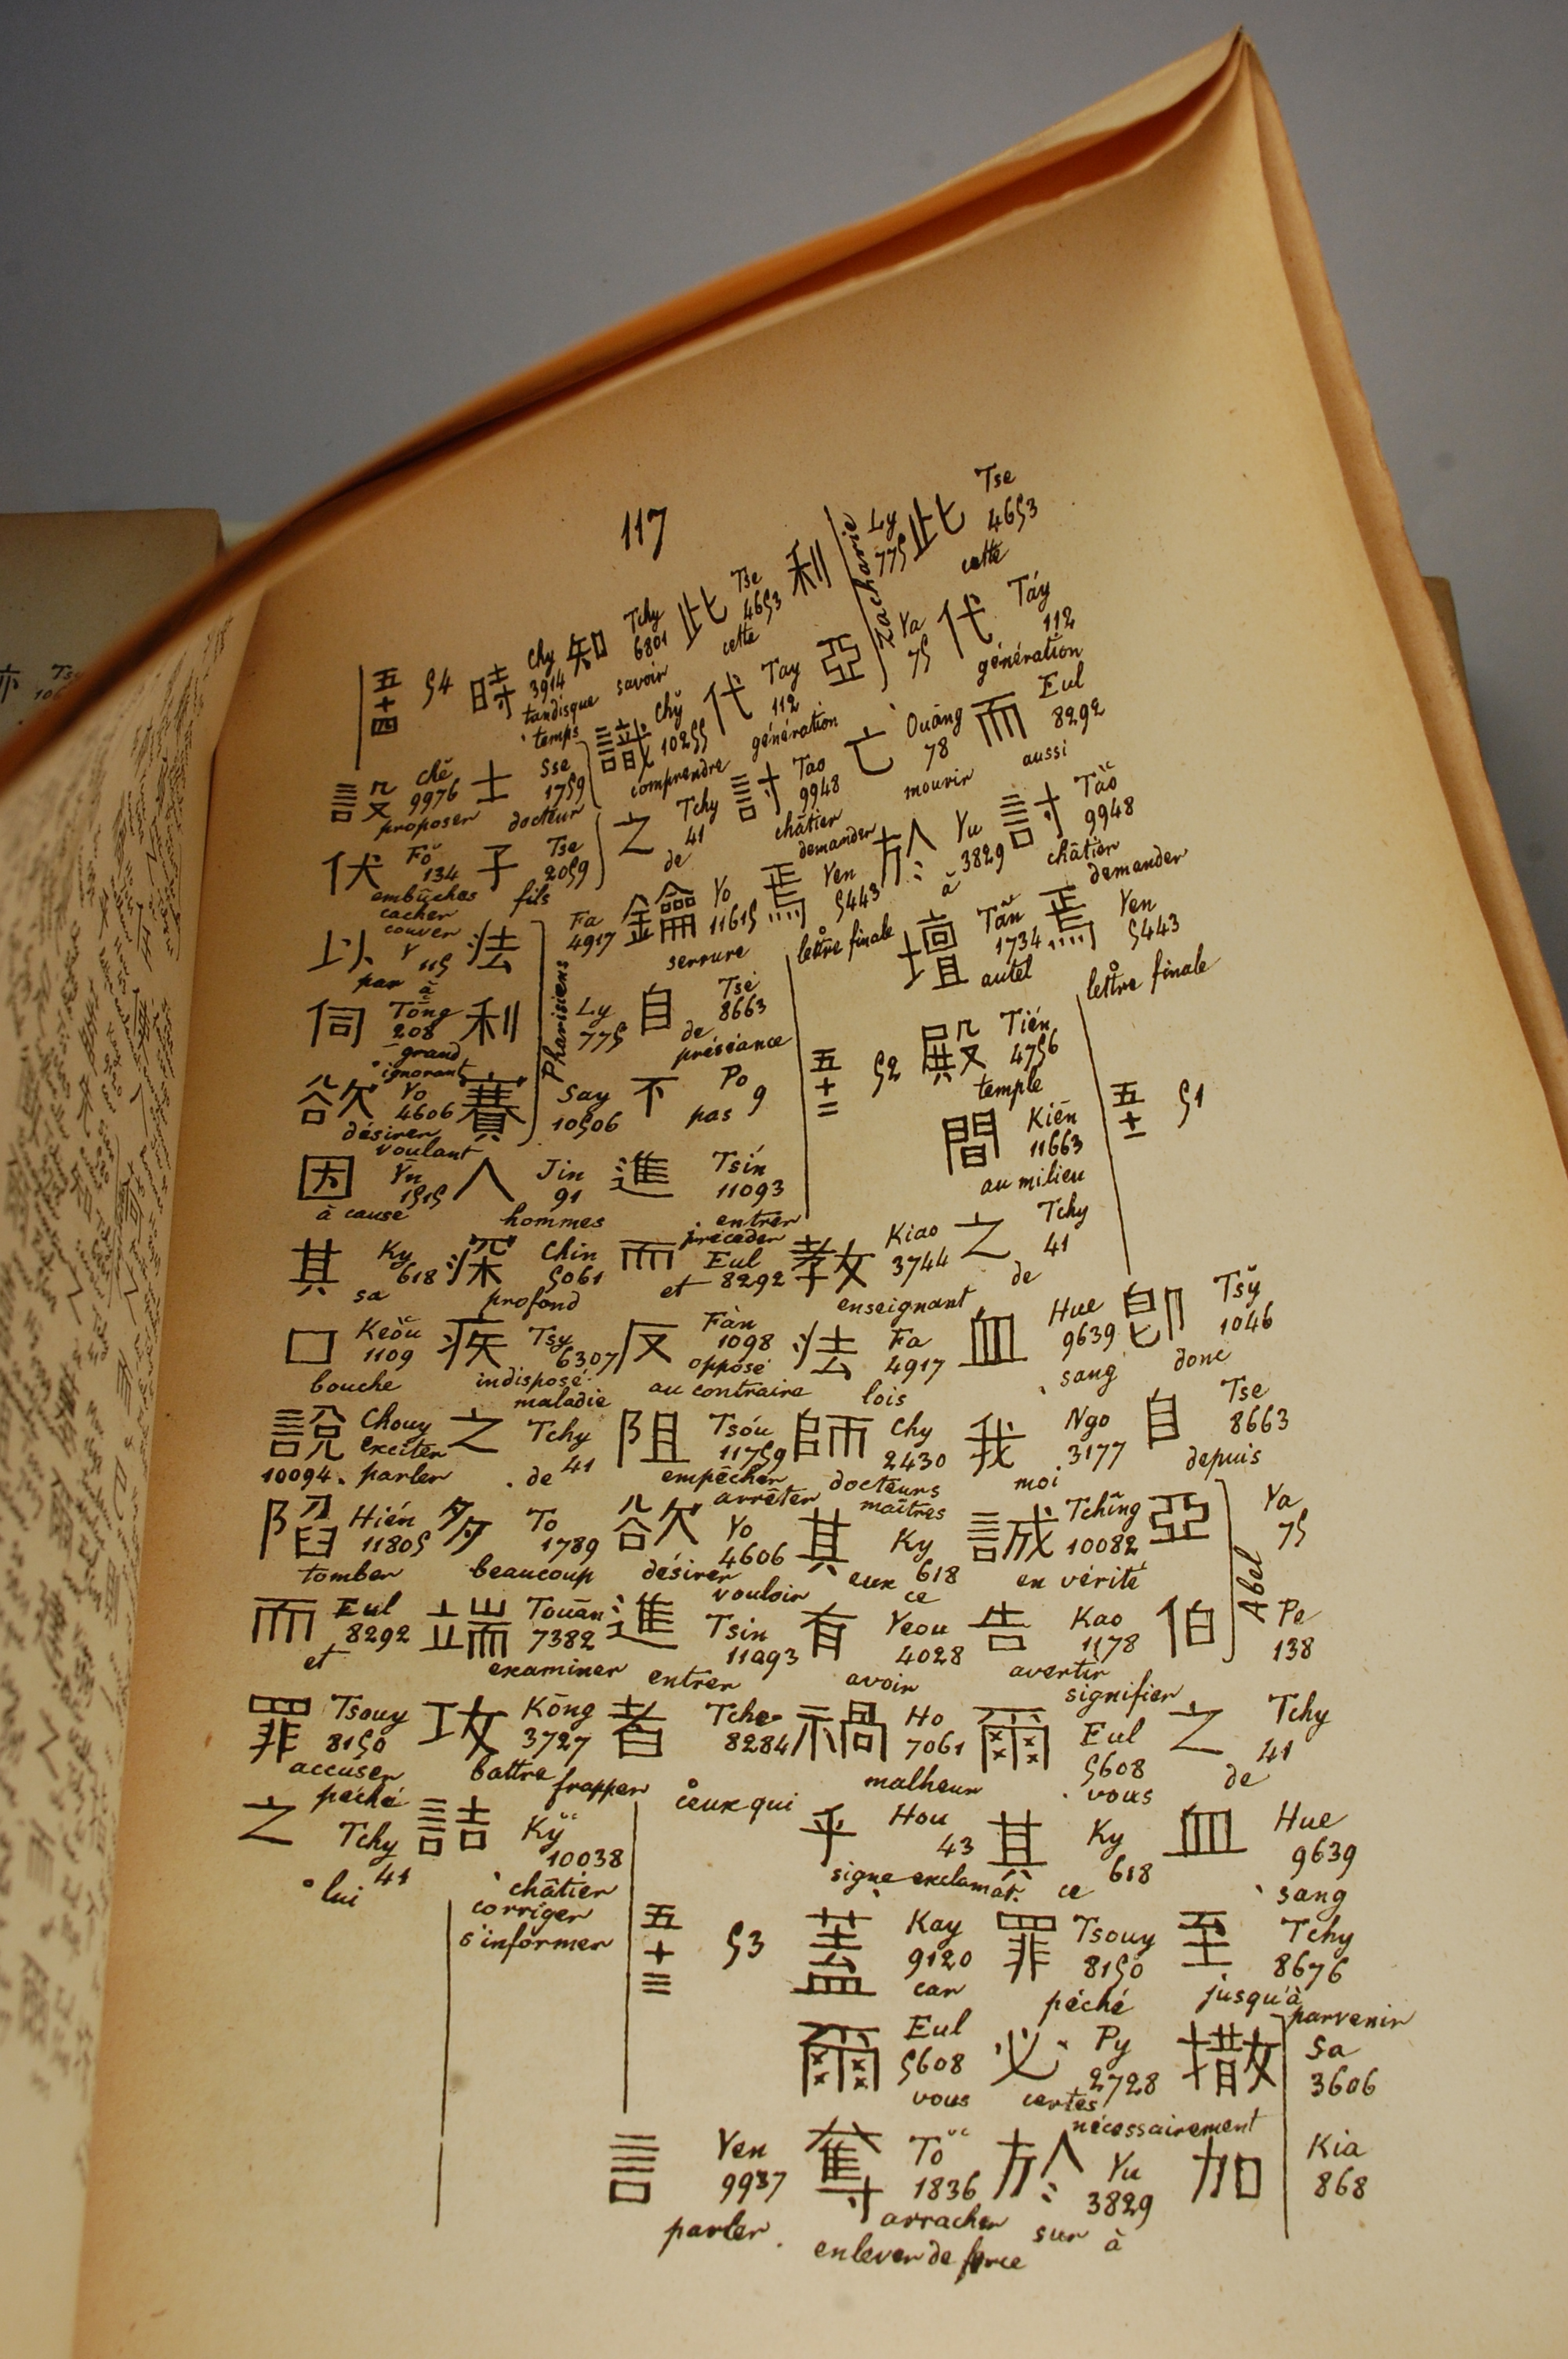 117
此 Tse 4653 cette
代 Táy 112 génération
而 Eul 8292 aussi
討 Tăo 9948 châtier demander
焉 Yen 5443 lettre finale
五十一 51
卽 Tsy̆ 1046 donc
自 Tse 8663 depuis
亞 Ya 75
伯 Pe 138
Abel
之 Tchy 41 de
血 Hue 9639 sang
至 Tchy 8676 jusqu'à parvenir
撒 Sa 3606
加 Kia 868
利 Ly 775
亞 Ya 75
Zacharie
亡 Ouâng 78 mourir
於 Yu 3829 à
壇 Tăn 1734 autel
殿 Tién 4756 temple
間 Kiēn 11663 au milieu
之 Tchy 41 de
血 Hue 9639 sang
我 Ngo 3177 moi
誠 Tchîng 10082 en vérité
告 Kao 1178 avertir signifier
爾 Eul 5608 vous
其 Ky 618 ce
罪 Tsouy 8150 péché
必 Py 2728 certes nécessairement
於 Yu 3829 sur à
此 Tse 4653 cette
代 Tay 112 génération
討 Tao 9948 châtier demander
焉 Yen 5443 lettre finale
五十二 52
教 Kiao 3744 enseignant
法 Fa 4917 lois
師 Chy 2430 docteurs maîtres
其 Ky 618 eux ce
有 Yeou 4028 avoir
禍 Ho 7061 malheur
乎 Hou 43 signe exclamat.
蓋 Kay 9120 car
爾 Eul 5608 vous
奪 Tŏ 1836 arracher enlever de force
知 Tchy 6801 savoir
識 Chy̆ 10255 comprendre
之 Tchy 41 de
鑰 Yo 11615 serrure
自 Tse 8663 de préséance
不 Po 9 pas
進 Tsín 11093 entrer précéder
而 Eul 8292 et
反 Fàn 1098 opposé au contraire
阻 Tsóu 11759 empêcher arrêter
欲 Yo 4606 désirer vouloir
進 Tsin 11093 entrer
者 Tche 8284 ceux qui
五十三 53
言 Yen 9937 parler
時 Chy 3914 tandisque temps
士 Sse 1759 docteur
子 Tse 2059 fils
法 Fa 4917
利 Ly 775
賽 Say 10506
Pharisiens
人 Jin 91 hommes
深 Chin 5061 profond
疾 Tsy 6307 indisposé maladie
之 Tchy 41 de
多 To 1789 beaucoup
端 Touān 7382 examiner
攻 Kōng 3727 battre frapper
詰 Ky̆ 10038 châtier corriger s'informer
五十四 54
設 Chĕ 9976 proposer
伏 Fŏ 134 embûches cacher couver
以 Y 115 par à
伺 Tŏng 208 grand ignorant
欲 Yo 4606 désirer voulant
因 Yn 1515 à cause
其 Ky 618 sa
口 Keŏu 1109 bouche
說 Chouy 10094 exciter parler
陷 Hién 11805 tomber
而 Eul 8292 et
罪 Tsouy 8150 accuser péché
之 Tchy 41 lui